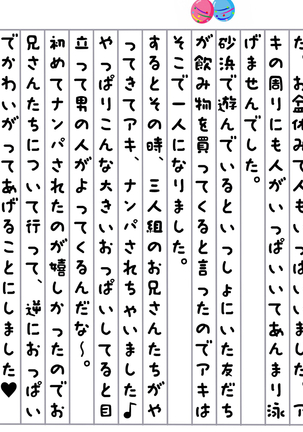 た。お盆休みで人もいっぱいいました。ア
キの周りにも人がいっぱいいてあんまり泳
げませんでした。
砂浜で遊んでいるといっしょにいた友だち
が飲み物を買ってくると言ったのでアキは
そこで一人になりました。
するとその時、三人組のお兄さんたちがや
ってきてアキ、ナンパされちゃいました♪
やっぱりこんな大きいおっぱいしてると目
立って男の人がよってくるんだな〜。
初めてナンパされたのが嬉しかったのでお
兄さんたちについて行って、逆におっぱい
でかわいがってあげることにしました♥